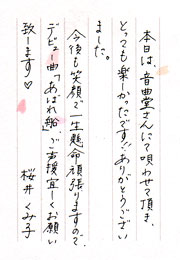 本日は、音曲堂さんにて唄わせて頂き、
とっても楽しかったです!!ありがとうござい
ました。
今後も笑顔で一生懸命頑張りますので、
デビュー曲「あばれ船」、ご声援宜しくお願い
致します♡
桜井くみ子